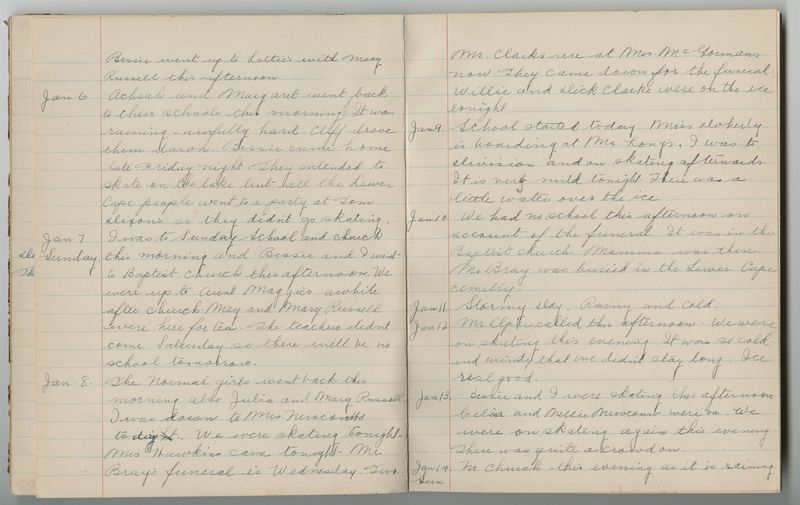 Bessie went up to Lottie's with Mary
Russell this afternoon.
Jan 6. Achsah and Margaret went back
to their schools this morning. It was
raining awfully hard. Cliff drove
them down. Bessie came home
late Friday night. They intended to
skate on the lake but all the Lower
Cape people went to a party at Tom
Dixons so they didn't go skating.
Jan 7 I was to Sunday School and church
Sunday this morning and Bessie and I went
to Baptist Church this afternoon. We
were up to Aunt Maggies awhile
after church. May and Mary Russell
were here for tea. The teachers didn't
come Saturday so there will be no
school tomorrow.
Jan. 8. The Normal girls went back this
morning also Julia and Mary Russell
I was down to Mrs. Newcombs
today. We were skating tonight.
Miss Hawkins came tonight. Mr
Bray's funeral is Wednesday.
Mr. Clarks are at Mrs. McGormans
now. They came down for the funeral.
Willie and Dick Clarke were on the ice
tonight.
Jan 9. School started today. Miss Doherty
is boarding at Mr Longs. I was to
division and on skating afterwards
It is very mild tonight. There was a
little water over the ice
Jan 10. We had no school this afternoon on
account of the funeral. It was in the
Baptist Church. Mamma was there
Mr Bray was buried in the Lower Cape
cemetry.
Jan 11. Stormy day. Rainy and cold.
Jan 12. Mr called this afternoon. We were
on skating this evening. It was so cold
and windy that we didn't stay long. Ice
real good.
Jan 13. Bessie and I were skating this afternoon
Celia and Nellie Newcomb were on. We
were on skating again this evening
There was quite a crowd on.
Jan 14. No church this evening as it is raining
Sun